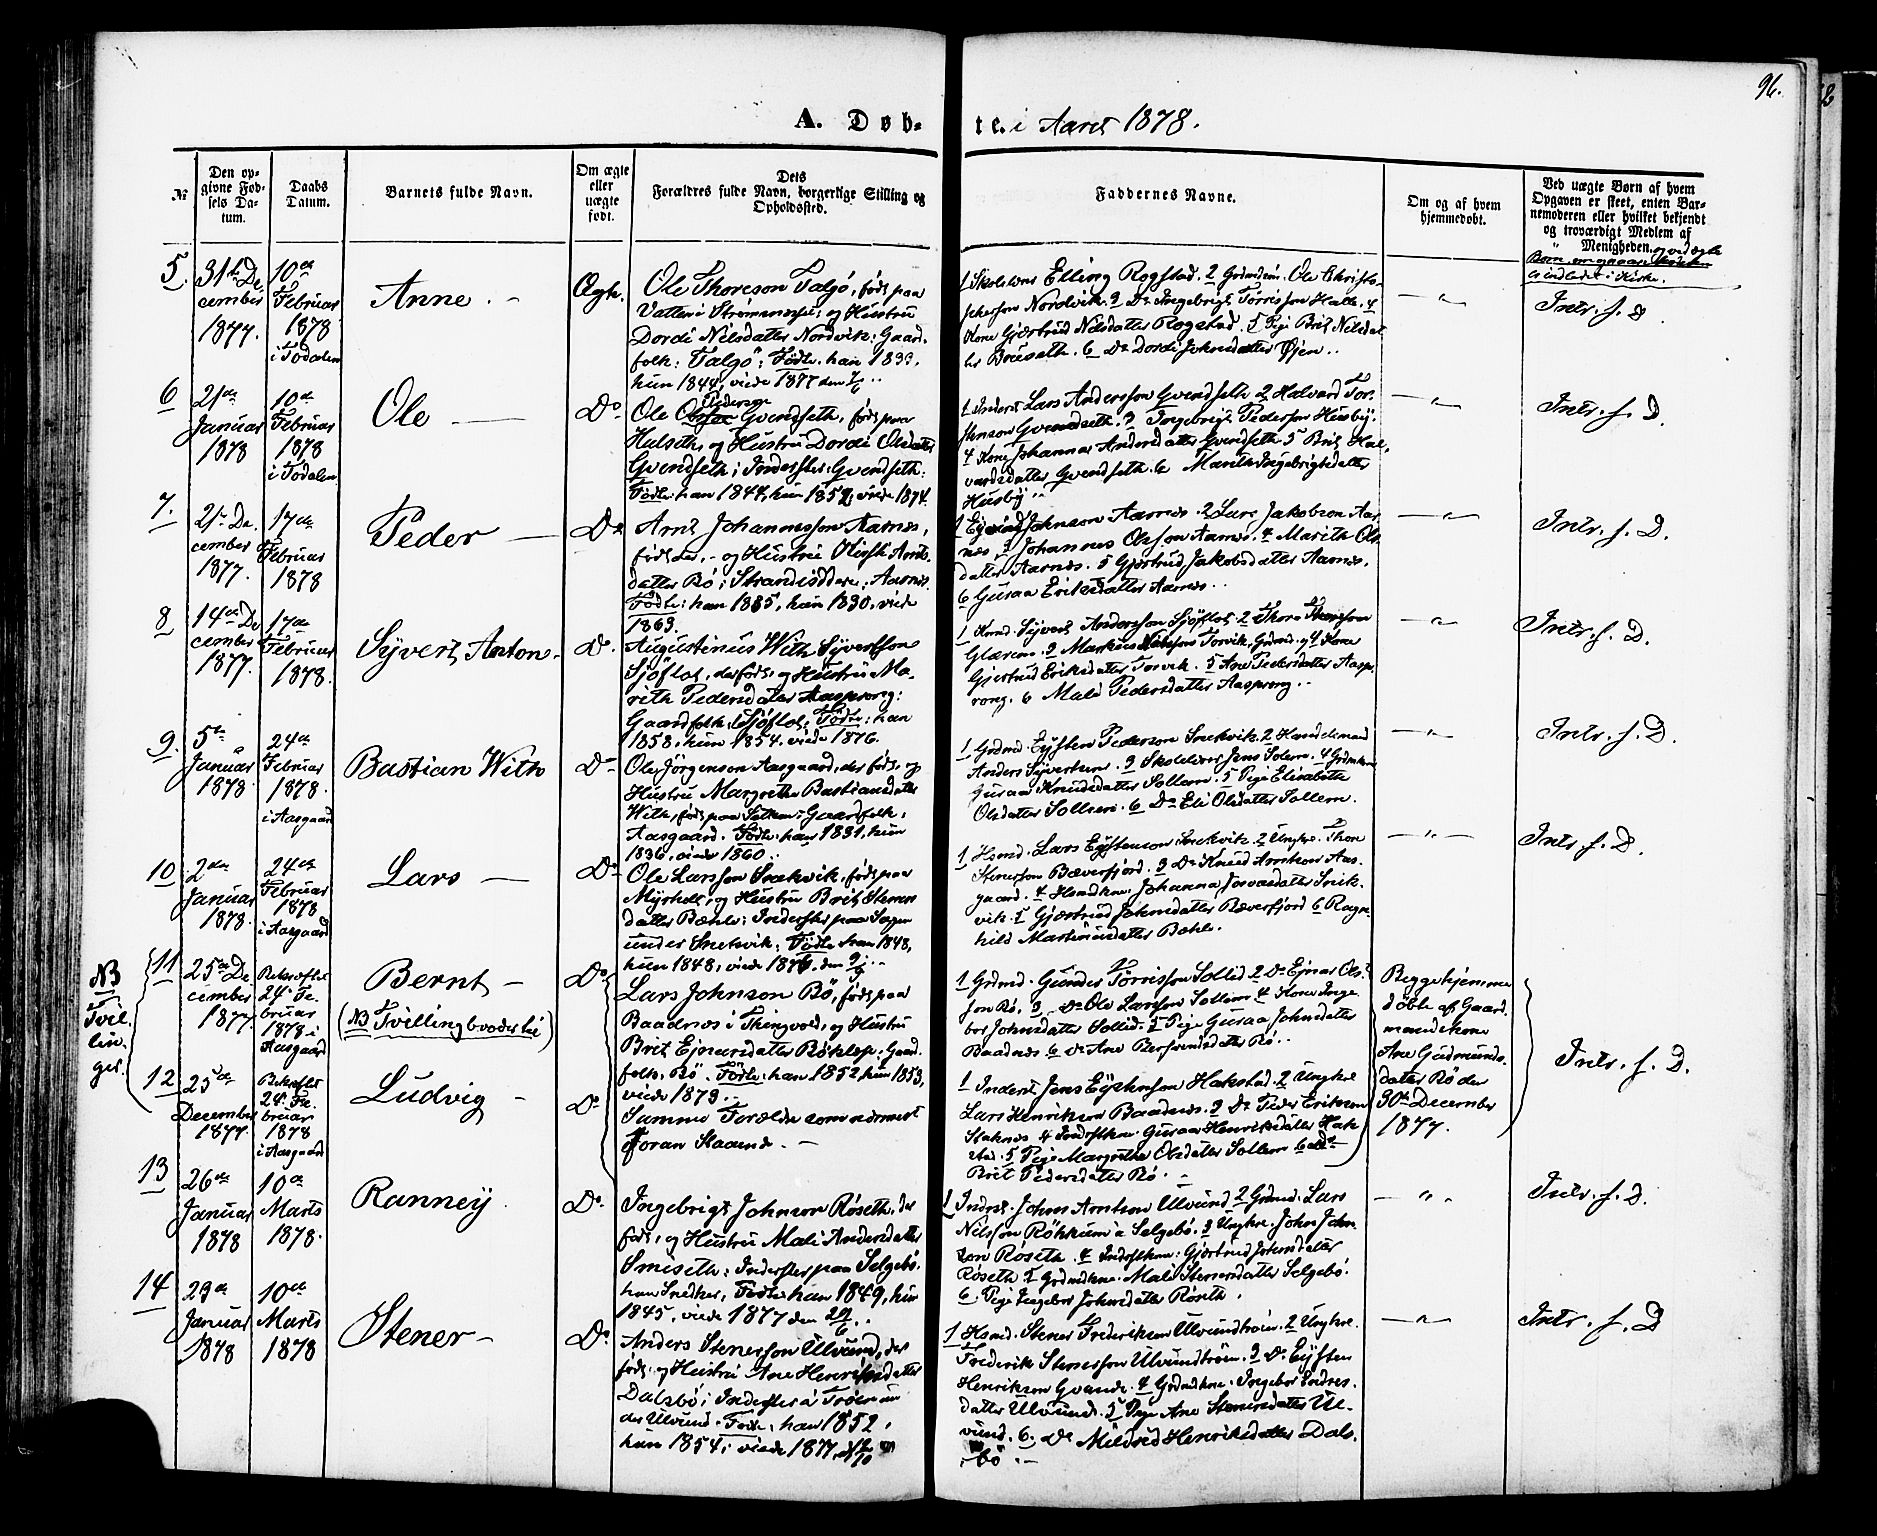 96.
A. Døb-
te. i Aaret 1878.
№
Den op-
givne Fød-
sels Da-
tum.
Daabs
Datum.
Barnets fulde Navn.
Om ægte
eller
uægte
født.
Dets
Forældres fulde Navn, borgerlige Stilling og
Opholdssted.
Faddernes Navne.
Om og af hvem
hjemmedøbt.
Ved uægte Børn af hvem
Opgaven er skeet, enten Bar-
nemoderen eller hvilket bekjendt
og troværdigt Medlem af
Menigheden. og ved ægte
indledet i Kirke.
5.
31te De-
cember
1877.
10de
Februar
1878
i Todalen
Anne. -
Ægte.
Ole Thoreson Talgø, født paa
Vatten i Strømsnæs, og Hustru
Dordi Nilsdatter Nordvik: Gaard-
folk: Talgø: Fødte: han 1833,
hun 1844, viede 1877 den
1 Skolelærer Elling Rogstad. 2 Grdmdsøn. Ole Christo-
phersøn Nordvik. 3 Do Ingebrigt Torrisson Halle. 4
Kone Gjertrud Nilsdatter Rogstad. 5 Pige Brit Nilsdat-
ter Bruseth. 6 Do Dordi Johnsdatter Øjen..
— " —
Intr. f. D
6
21de
Januar
1878
10de
Februar
1878
i Todalen
Ole —
Do
Ole Pedersøn Gvendseth, født paa
Halseth, og Hustru Dordi Olsdatter
Gvendseth; Inderster: Gvendseth:
Fødte: han 1844, hun 1852; viede 1874.
1 Inderst Lars Andersson Gvendseth 2 Halvard Tor-
stenson Gvendseth. 3 Ingebrigt Pederson Husby.
4 Kone Johanna Andersdatter Gvendseth 5 Brit Hal-
vardsdatter Gvendseth. 6 Marith Ingebrigtsdatter
Husby..
— " —
Intr. f. D.
7.
21de De-
cember
1877.
17de
Februar
1878
Peder —
Do
Arnt Johannesson Aarnes,
født der, - og Hustru Arnts-
datter Bø; Strandsiddere: Aarnes.
Fødte: han 1835, hun 1830, viede
1863.
1 Johnson Aarnes. 2 Lars Jakobson Aar-
næs, 3 Johannes Olsson Aarnes. 4 Marith Ols-
datter Aarnes. 5 Gjertrud Jakobsdatter Aarnes.
6 Guraa Eriksdatter Aarnes..
— " —
Intr. f. D.
8
14de De-
cember
1877.
17de
Februar
1878.
Syvert Anton -
Do.
Augustinus With Syvertson
Sjøflot, der født, og Hustru Ma-
rith Pedersdatter Aasprong:
Gaardfolk, Sjøflot; Fødte: han
1858, hun 1854, viede 1876.
1 Syvert Anderson Sjøflot 2 Thore Thoreson
Glærem. 3 Markus Torvik, Grdmd. og 4 Kone
Gjertrud Eriksdatter Torvik. 5 Ane Pedersdatter Aasp-
rong. 6 Mali Pedersdatter Aasprong..
— " —
Intr. f. D.
9.
5te
Januar
1878.
24de
Februar
1878.
i Aasgaard
Bastian With
Do
Ole Jørgenson Aasgaard, der født, og
Hustru Margrethe Bastiansdatter
With, født paa Sætker: Gaardfolk,
Aasgaard. Fødte: han 1831, hun
1836, viede 1860..
1 Grdmd. Eysten Pederson Snekvik. 2 Handelsmand
Anders Syvertsen. 3 Skolelærer Jens Solem. 4 Grdmkone
Guraa Knudsdatter Sollem. 5 Pige Elisabeth
Olsdatter Sollem. 6 Do Eli Olsdatter Sollem.
— " —
Intr. f. D.
10
2den
Januar
1878.
24de
Februar
1878
i Aasgaard
Lars —
Do
Ole Larsson Snekvik, født paa
Myrholt, og Hustru Brit Steners-
datter Bæhle: Inderster paa Sagen
under Snekvik: Fødte han 1848,
hun 1848, viede 1876, den
1 Hsmd. Lars Eystenson Snekvik. 2 Ungkr. Thore
Stenerson Bæverfjord. 3 Do Knud Arntson Aas-
gaard. 4 Hsmdkne. Johanna Snek-
vik. 5 Gjertrud Johnsdatter Bæverfjord 6 Ragn-
hild Martinusdatter Bæhle.
— " —
Intr. f. D.
NB
Tvil-
lin-
ger.
11
25de De-
cember
1877
Bekræftet
24de Fe-
bruar
1878 i
Aasgaard
Bernt -
(NB Tvillingbrødre)
Do
Lars Johnson Bø, født paa
Baadnæs i Thingvold, og Hustru
Brit Ejnarsdatter Røklep: Gaard-
folk, Bø. Fødte: han 1852 hun 1853,
viede 1873..
1 Grdmd. Gunder Torrisson Sollid 2 Do Ejnar Ols-
son Bø. 3 Do Ole Larsson Sollem 4 Kone Inge-
bor Johnsdatter Sollid. 5 Pige Guraa Johnsdatter
Baadnæs 6 Do Ane Berhendsdatter Bø..
Begge hjemme-
døbte af Gaard-
mandskone
Ane Gudmunds-
datter Bø den
30te December
1877.
Intr. f. D.
12
25de
December
1877.
Bekræftet
24de Fe-
bruar
1878
i Aasgaard
Ludvig -
Do
Samme Forældre som nærmest
foran Staaende. —
1 Inderst Jens Eystenson Hakstad. 2 Ungkrl
Lars Henrikson Baadnæs. 3 Do Peder Erikson
Staknes 4 Indstkne. Guraa Henriksdatter Hak-
stad. 5 Pige Margrethe Olsdatter Sollem 6 Do
Brit Pedersdatter Bø. -
13
26de
Januar
1878
10de
Marts
1878.
Ranney
Do.
Ingebrigt Johnson Røseth, der
født, og Hustru Mali Andersdatter
Smiseth: Inderster paa Selgebø,
han Snedker, Fødte han 1849, hun
1845, viede 1877 den
1 Indrst. John Arntson Ulvund 2 Grdmd. Lars
Nilsson Røkkum à Selgebø. 3 Ungkr. John John-
son Røseth. 4 Indstkne: Gjertrud Johnsdatter
Røseth 5 Grdmdkne. Mali Stenersdatter Selgebø.
6. Pige Ingebor Johnsdatter Røseth.
— " -
Intr. f. D.
14
29de
Januar
1878
10de
Marts
1878
Stener -
Do.
Anders Stenersson Ulvund, der
født, og Hustru Ane Henriksdatter
Dalsbø; Inderster à Trøen un-
der Ulvund. Fødte: han 1852,
hun 1854; viede 1877,
1 Hsmd. Stener Frederiksen Ulvundtrøen. 2 Ungkr.
Frederik Stenersson Ulvundtrøen. 3 Do Eysten
Henrikson Gvande. 4 Grdmdkne. Ingebor Endres-
datter Ulvund. 5 Pige Ane Stenersdatter Ul-
vund. 6. Do Mildrid Henriksdatter Dals-
bø. —
— " —
Intr. f. D